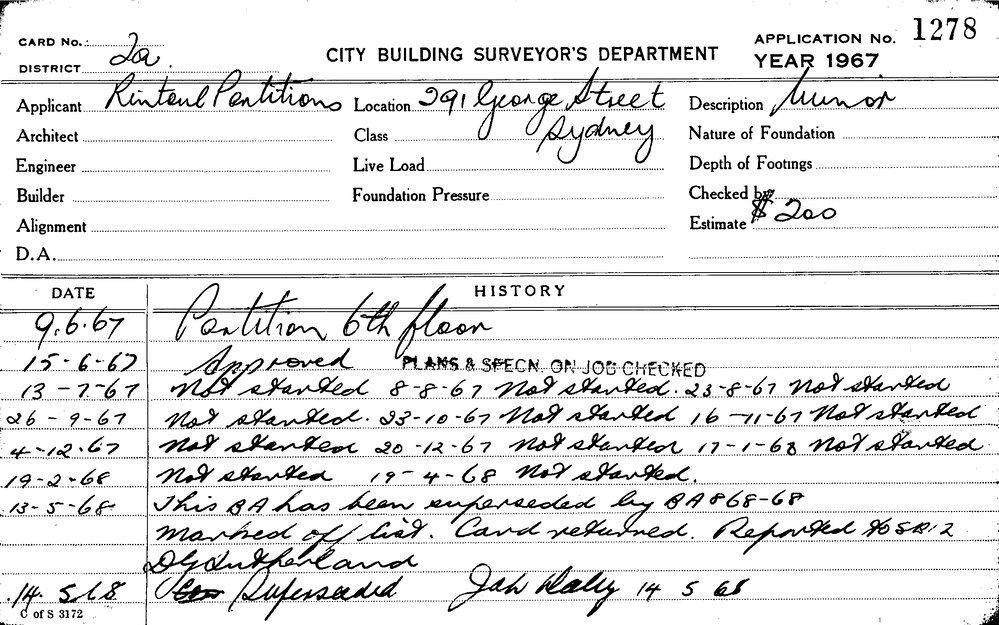 CARD No.:
DISTRICT 2a.
CITY BUILDING SURVEYOR'S DEPARTMENT
APPLICATION No. 1278
YEAR 1967
Applicant Rintoul Partitions Location 291 George Street Description Minor
Architect Class Sydney Nature of Foundation
Engineer Live Load Depth of Footings
Builder Foundation Pressure Checked by
Alignment Estimate $ 200
D.A.
DATE HISTORY
9.6.67 Partition 6th floor
15-6-67 Approved PLANS & SPECN. ON JOB CHECKED
13-7-67 Not started 8-8-67 Not started. 23-8-67 Not started
26-9-67 Not started. 23-10-67 Not started 16-11-67 Not started
4-12-67 Not started 20-12-67 Not started 17-1-68 Not started
19-2-68 Not started 19-4-68 Not started.
13-5-68 This BA has been superseded by BA 868-68
marked off list. Card returned. Reported to SB12
DG Sutherland
14. 5.68 Superseded Daly 14 5 68
C of S 3172